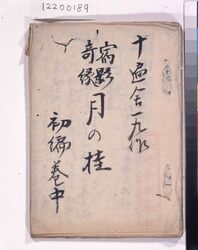 12200189
十遍舎一九作
宿影
奇縁
月の桂
初編巻中